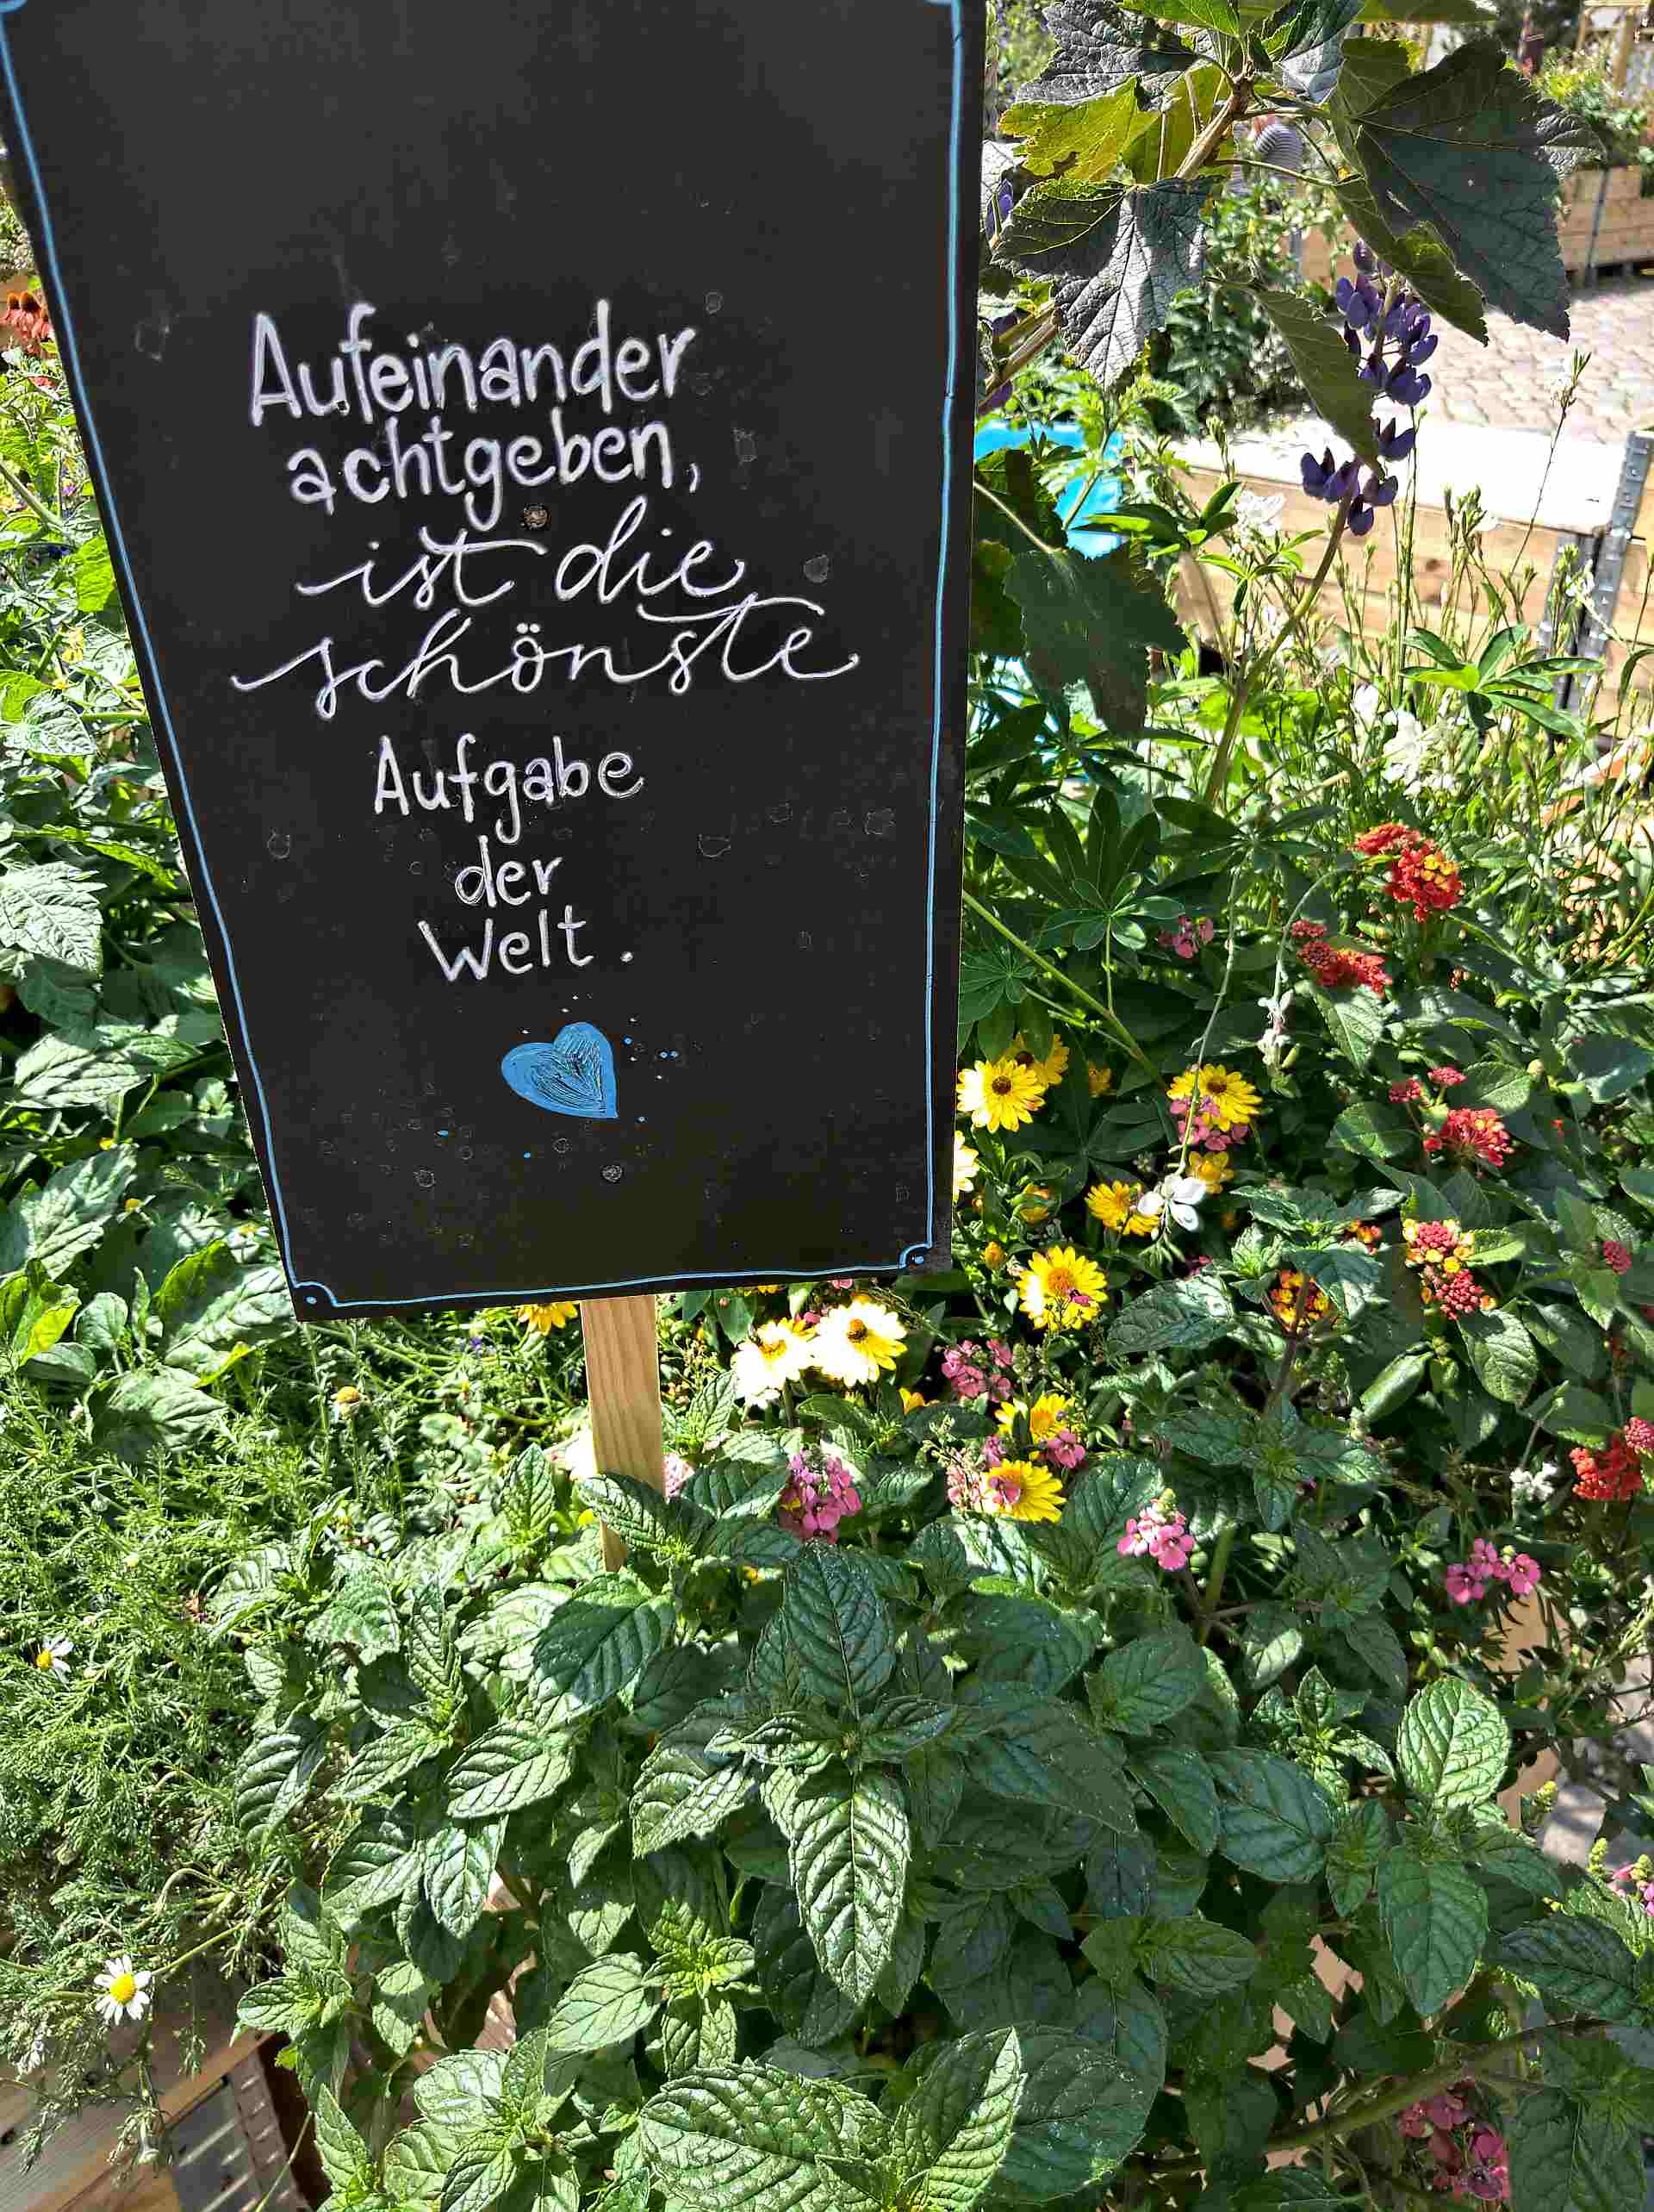 Aufeinander
achtgeben,
ist die
schönste
Aufgabe
der
Welt.